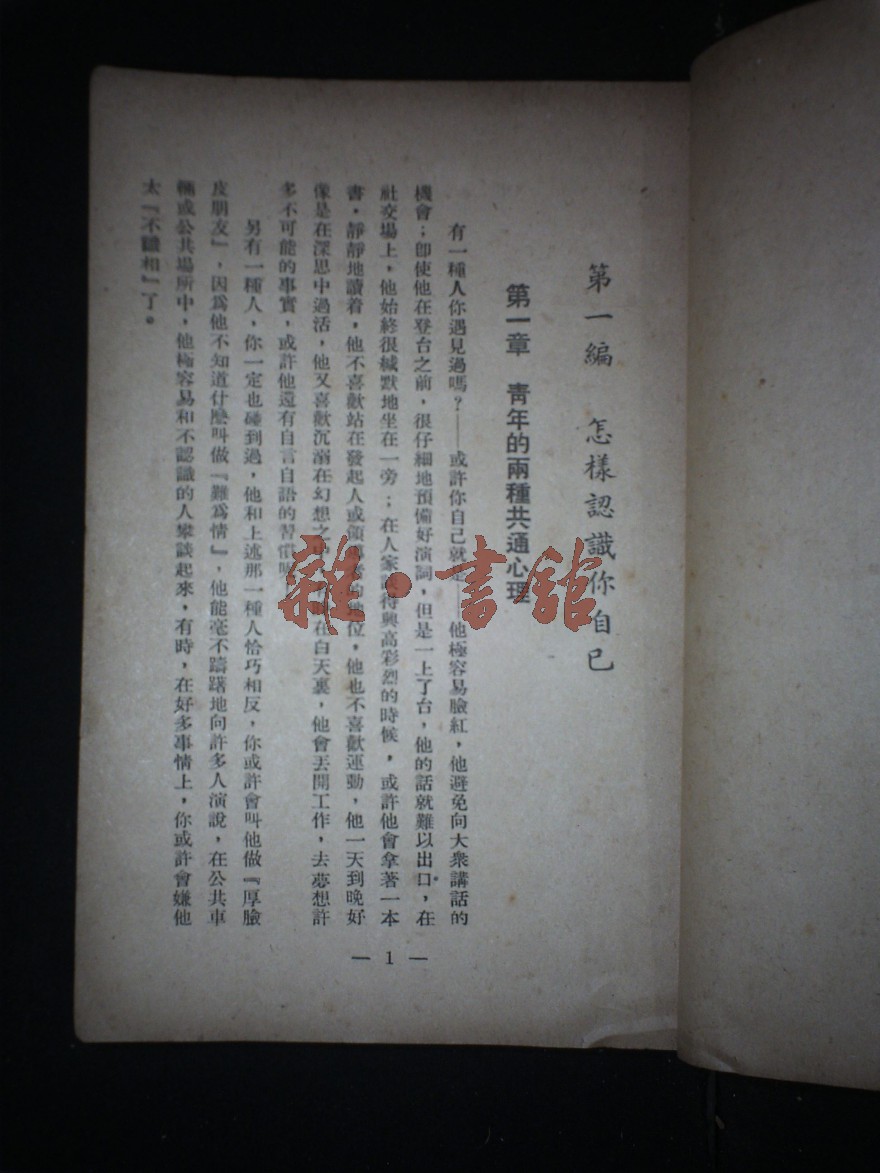 第一編　怎樣認識你自己
第一章　靑年的兩種共通心理
有一種人你遇見過嗎？——或許你自己就是——他極容易臉紅，他避免向大衆講話的
機會；卽使他在登台之前，很仔細地預備好演詞，但是一上了台，他的話就難以出口，在
社交場上，他始終很緘默地坐在一旁；在人家談得興高彩烈的時候，或許他會拿著一本
書，靜靜地讀着，他不喜歡站在發起人或領的地位，他也不喜歡運動，他一天到晚好
像是在深思中過活，他又喜歡沉溺在幻想之中在白天裏，他會丟開工作，去夢想許
多不可能的事實，或許他還有自言自語的習慣
另有一種人，你一定也碰到過，他和上述那一種人恰巧相反，你或許會叫他做『厚臉
皮朋友』，因爲他不知道什麼叫做『難爲情』，他能毫不躊躇地向許多人演說，在公共車
輛或公共場所中，他極容易和不認識的人攀談起來，有時，在好多事情上，你或許會嫌他
太『不識相』了。
— 1 —
雜·書館